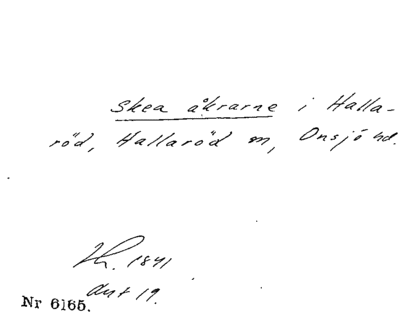 Skea åkrarne i Halla-
röd, Hallaröd sn, Onsjö hd.
1841
Akt 19.
Nr 6165.